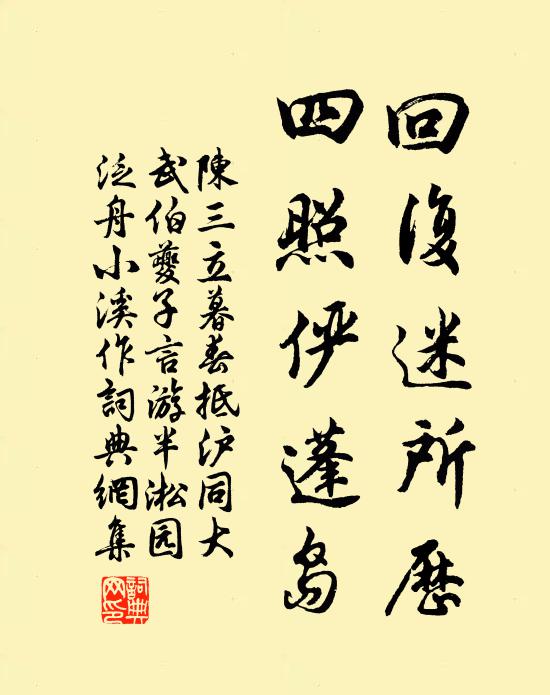 回復迷所歷
四照俨蓬岛
陳三立暮春抵沪同大
武伯夔子言游半淞园
泛舟小溪作詞典網集